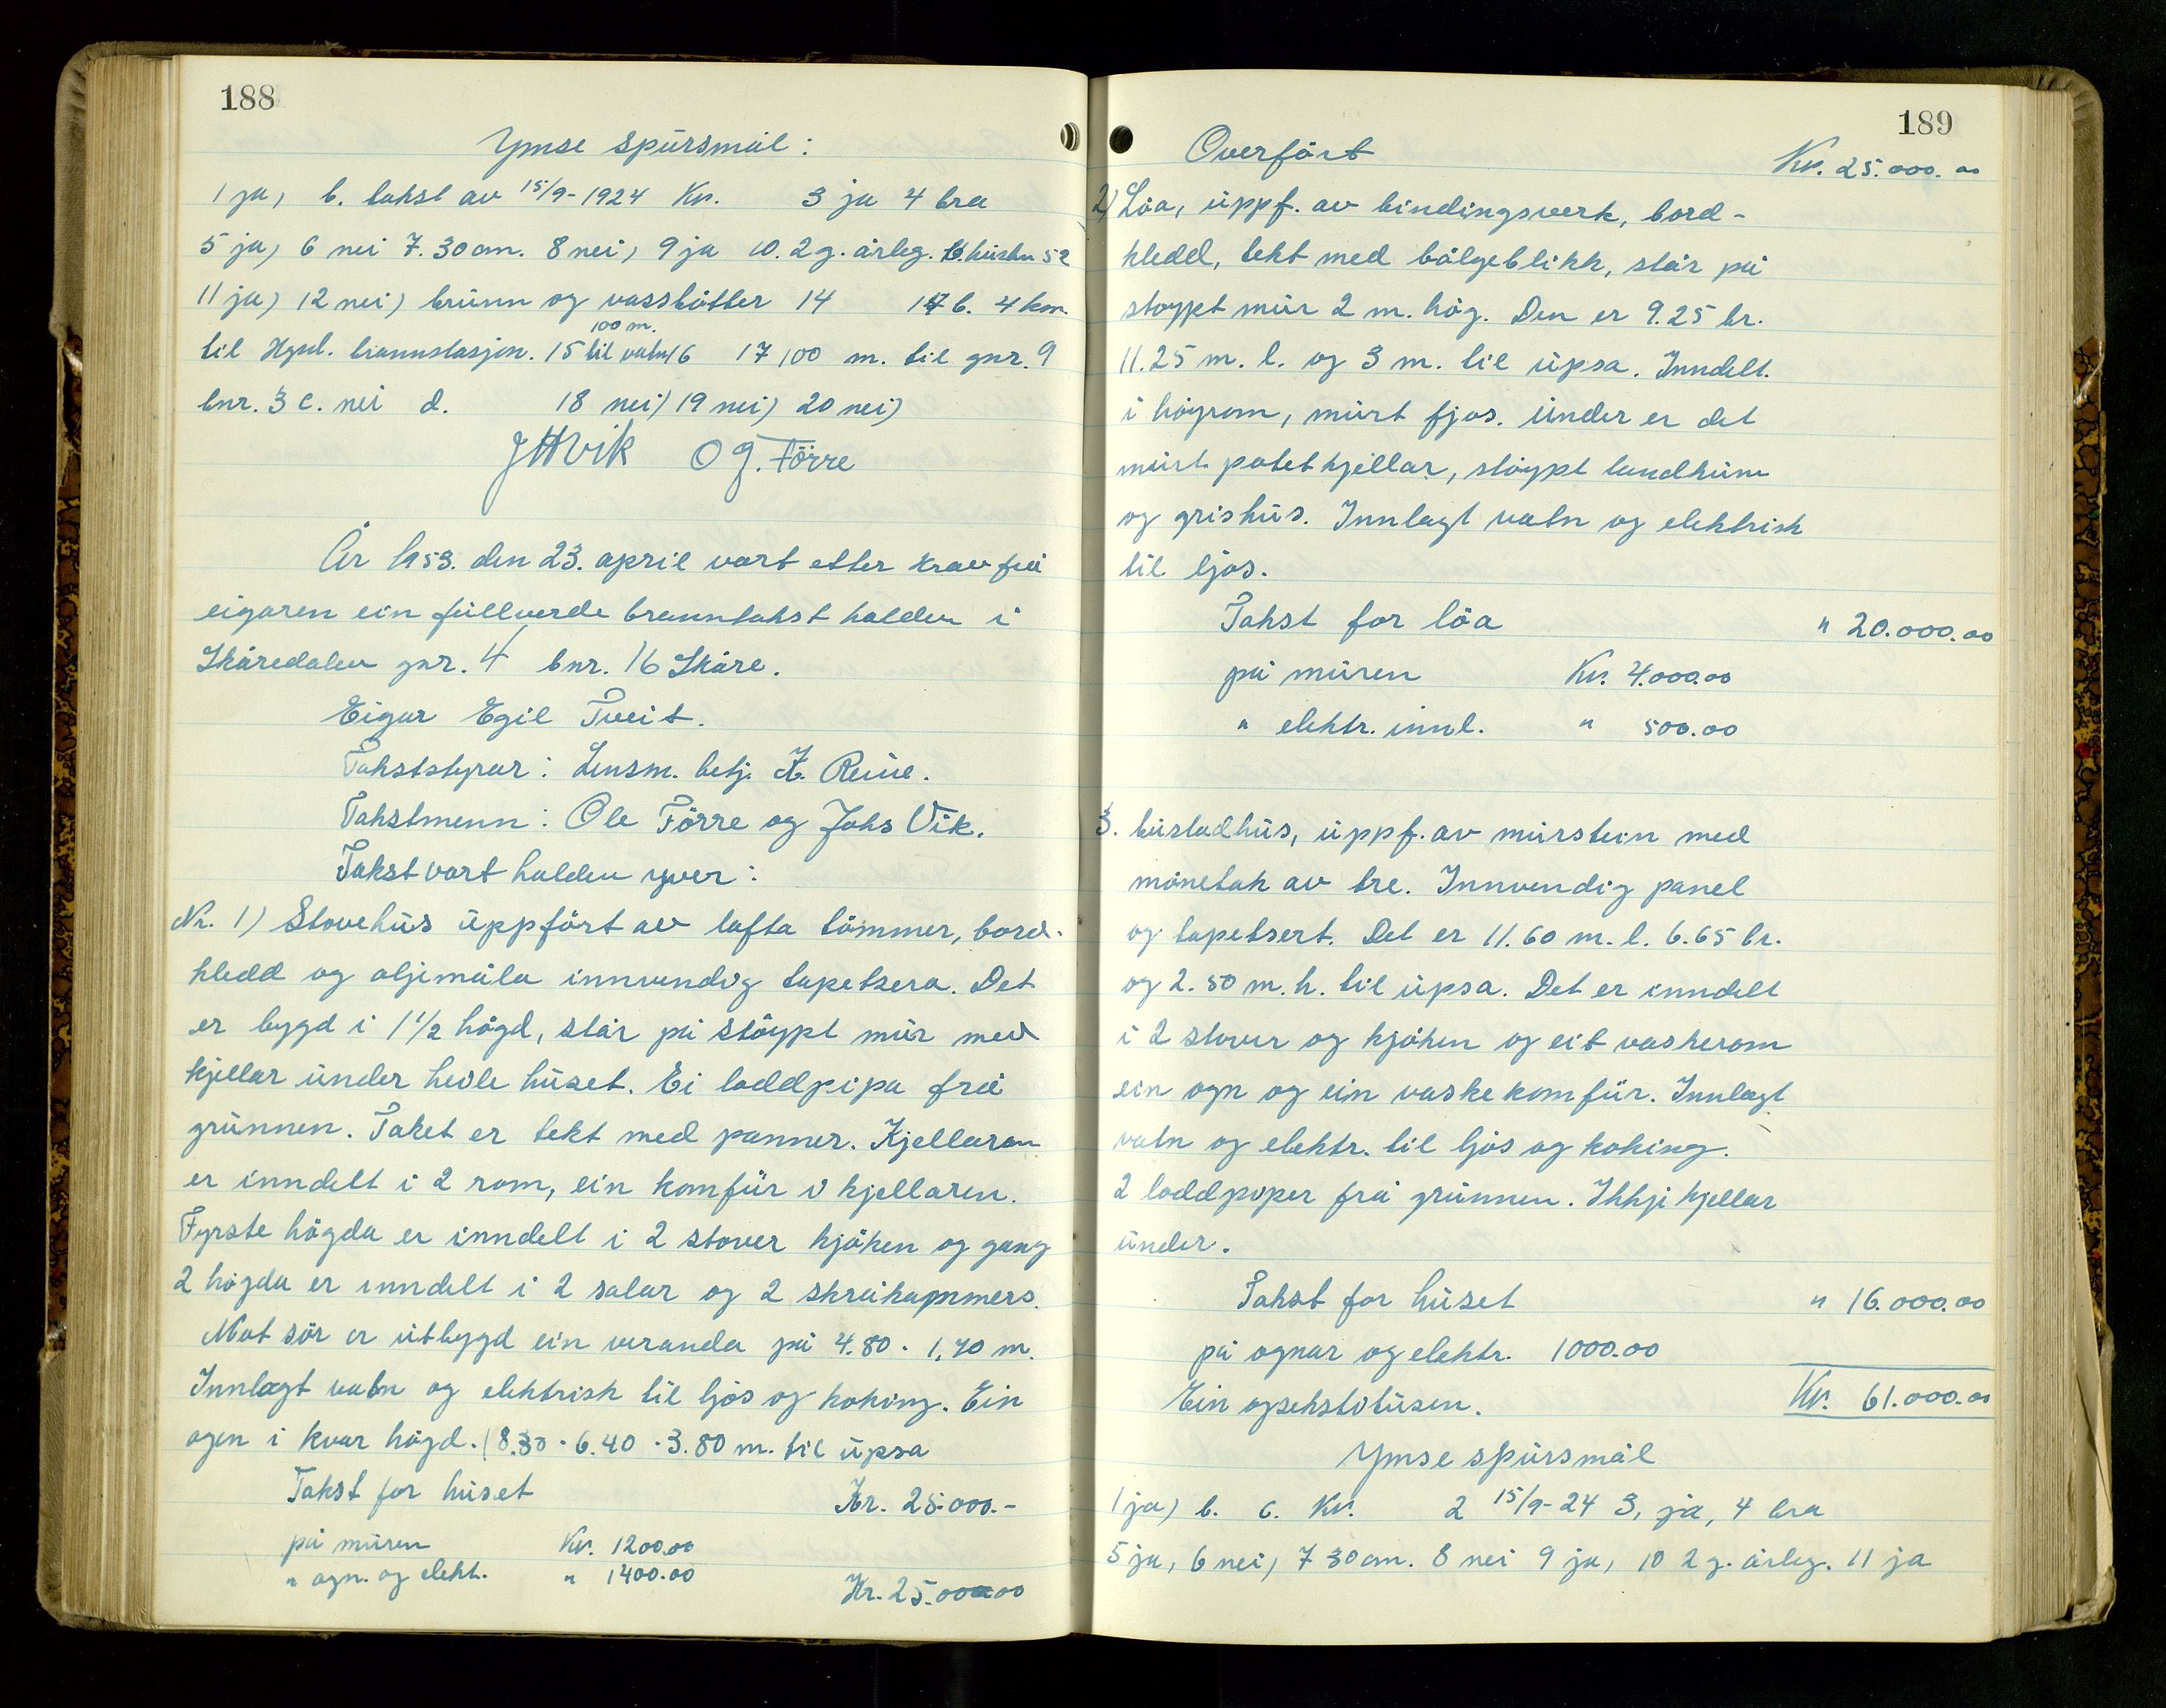 188
Ymse spursmål:
1 ja, b. takst av 15/9-1924 Kr. 3 ja 4 bra
5 ja, 6 nei 7. 30 cm. 8 nei, 9 ja 10. 2 g. årleg.
11 ja) 12 nei) brunn og vassbøtter 14 b. 4 km.
100 m.
til Hgsd. brannstasjon. 15 til vatn 16 17 100 m. til gnr. 9
bnr. 3 c. nei d. 18 nei) 19 nei) 20 nei)
JHVik O G. Förre
År 1953. den 23. april vart etter krav frå
eigaren ein fullverde branntakst halden i
Skåredalen gnr. 4 bnr. 16 Skåre.
Eigar Egil Tveit.
Takststyrar: Lensm. betj. K. Reiue.
Takstmenn: Ole Förre og Johs Vik.
Takst vart halden yver:
Nr. 1) Stovehus uppført av lafta tömmer, bord-
kledd og oljemåla innvendig tapetsera. Det
er bygd i 1 1/2 högd, står på stöypt mur med
kjellar under heile huset. Ei loddpipa frå
grunnen. Taket er tekt med panner. Kjellaren
er inndelt i 2 rom, ein komfur i kjellaren.
Fyrste högda er inndelt i 2 stover kjöken og gang
2 högda er inndelt i 2 salar og 2 skråkammers.
Mot sör er utbygd ein veranda på 4.80 · 1.70 m.
Innlagt vatn og elektrisk til ljos og koking. Ein
ogn i kvar högd. (8.30 · 6.40 · 3.80 m. til upsa
Takst for huset Kr. 25.000.-
på muren Kr. 1200.00
" ogn. og elekt. " 1400.00
Kr. 25.000.00
189
Overfört Kr. 25.000.00
2) Löa, uppf. av bindingsverk, bord-
kledd, tekt med bölgeblikk, står på
stoypt mur 2 m. hög. Den er 9.25 br.
11.25 m. l. og 3 m. til upsa. Inndelt.
i höyrom, murt fjos. Under er det
murt potetkjellar, stöypt landkum
og grishus. Innlagt vatn og elektrisk
til ljos.
Takst for löa " 20.000.00
på muren Kr. 4.000.00
" elektr. innl. " 500.00
3. bustadhus, uppf. av murstein med
mönetak av tre. Innvendig panel
og tapetsert. Det er 11.60 m. l. 6.65 br.
og 2.50 m. h. til upsa. Det er inndelt
i 2 stover og kjöken og eit vaskerom
ein ogn og ein vaskekomfür. Innlagt
vatn og elektr. til ljos og koking.
2 loddpiper frå grunnen. Ikkje kjellar
under.
Takst for huset " 16.000.00
på ognar og elektr. 1000.00
Ein ogsekstitusen. Kr. 61.000.00
Ymse spursmål
1 ja) b. c. Kr. 2 15/9-24 3, ja, 4 bra
5 ja, 6 nei, 7 30 cm. 8 nei 9 ja, 10 2 g. årleg. 11 ja